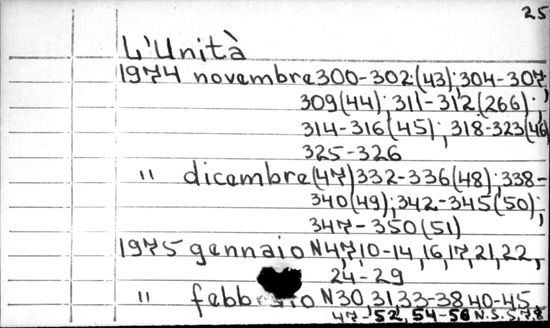 25
L'Unità
1974 novembre 300-302(43); 304-307,
309(44); 311-312(266);
314-316(45); 318-323(46)
325-326
" dicembre(47)332-336(48); 338-
340(49); 342-345(50);
347-350(51)
1975 gennaio N4,7,10-14,16,17,21,22,
24-29
" febbraio N30,31,33-38,40-45
47-52, 54-56 N.S.5,7,8